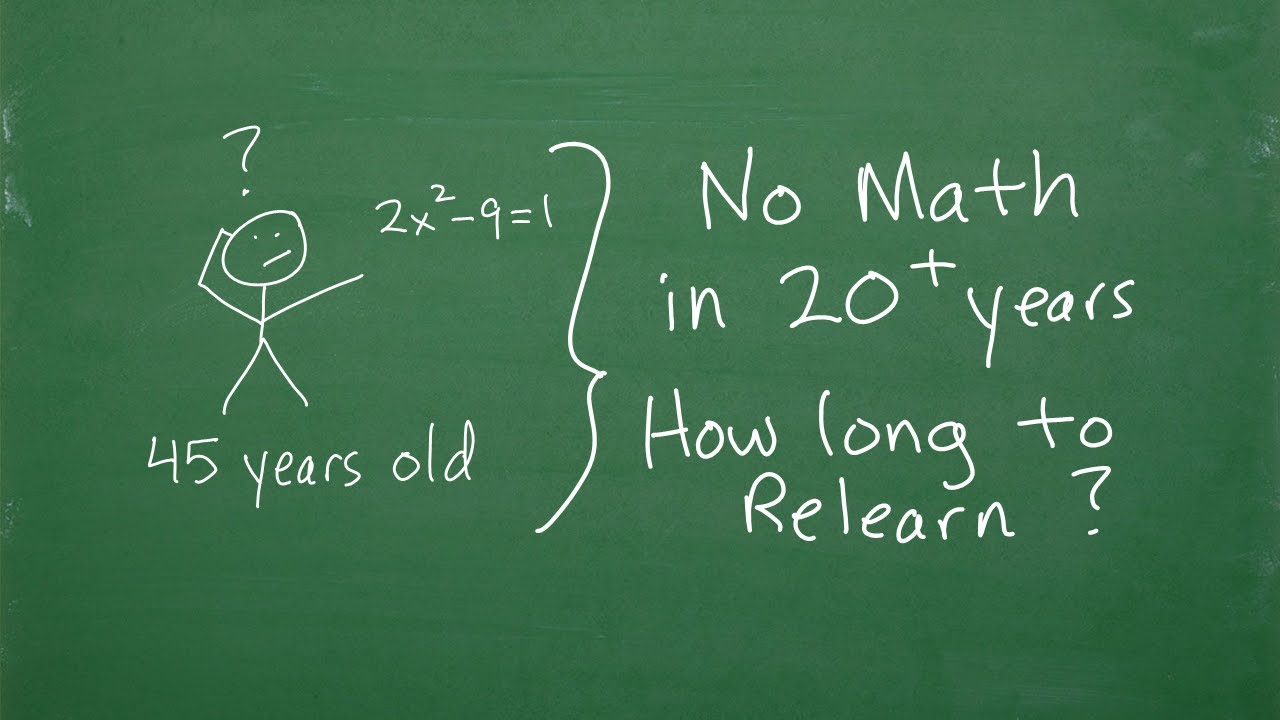 ?
2x²-9=1
45 years old
No Math
in 20⁺ years
How long to
Relearn ?